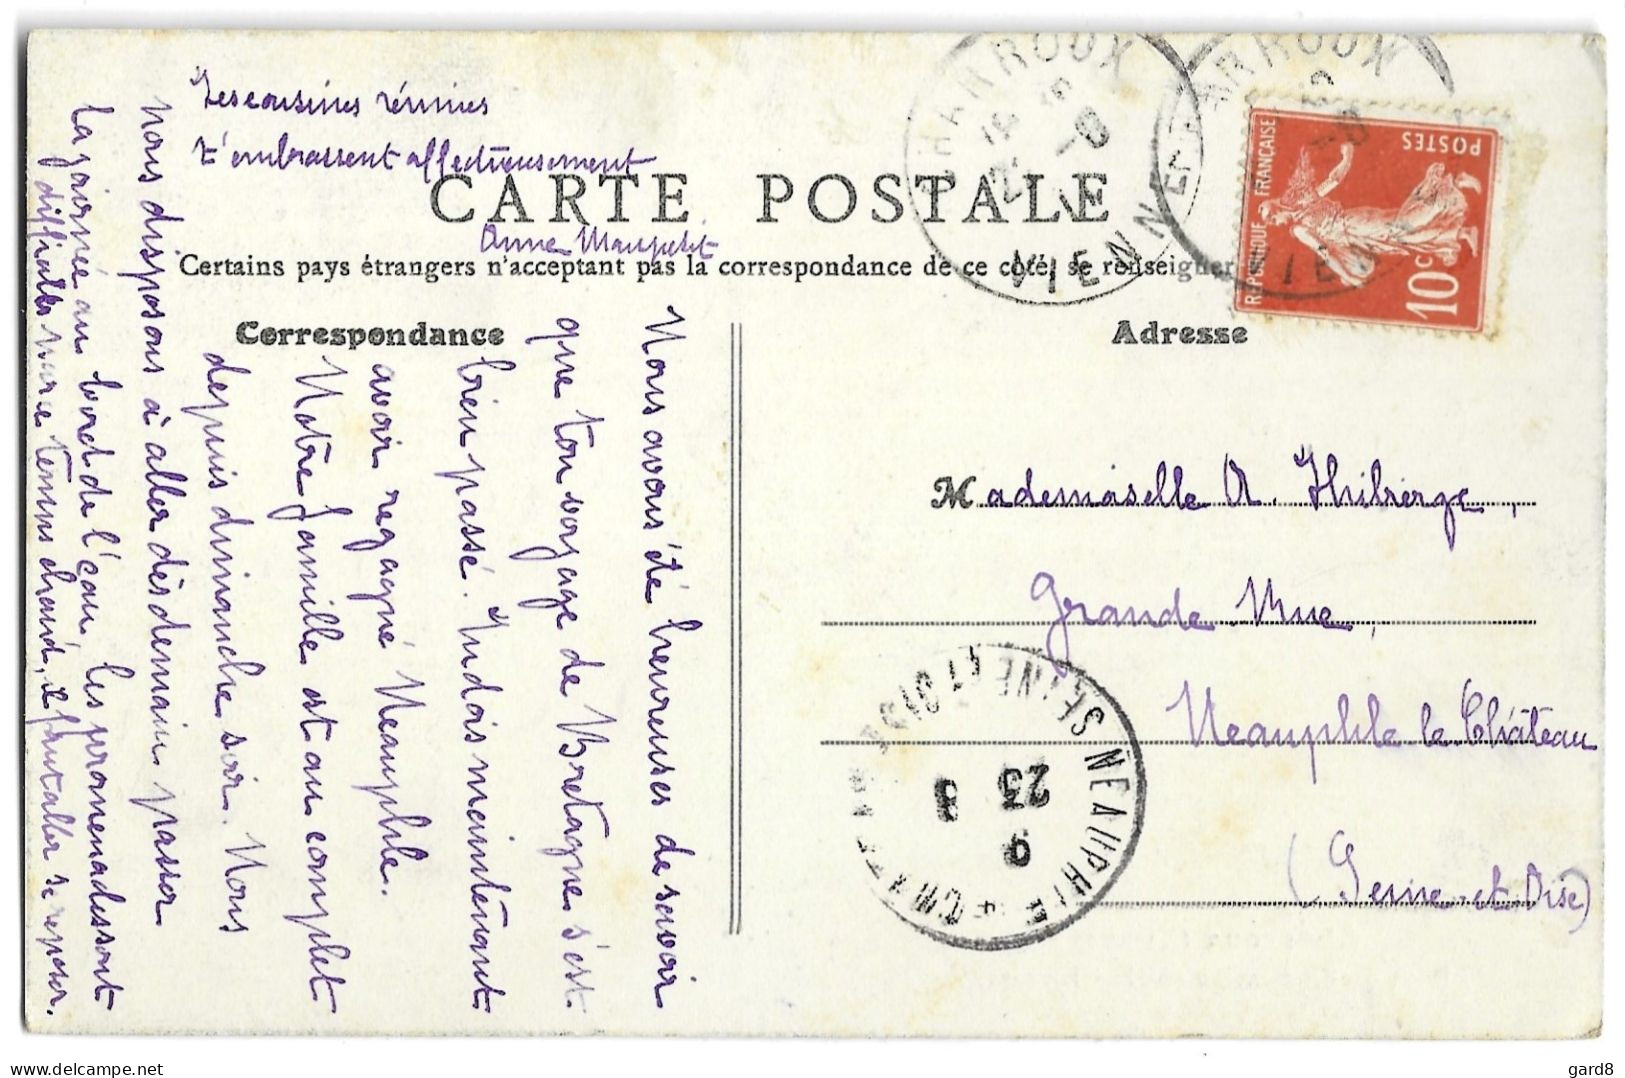 Tes cousines réunies
t'embrassent affectueusement
CARTE POSTALE
Anne Maupetit
Certains pays étrangers n'acceptant pas la correspondance de ce côté, se renseigner
Correspondance
Adresse
Nous avons été heureuses de savoir
que ton voyage de Bretagne s'est
bien passé. Tu dois maintenant
avoir regagné Neauphle.
Notre famille est au complet
depuis dimanche soir. Nous
nous disposons à aller dès demain passer
la journée au bord de l'eau les promenades sont
difficiles par ce temps chaud, il faut aller se reposer.
Mademoiselle A. Thiberge,
Grande Rue,
Neauphle-le-Château
(Seine-et-Oise)
CHARROUX
VIENNE
CHARROUX
VIENNE
REPUBLIQUE FRANÇAISE
POSTES
10c
NEAUPHLE-LE-CHATEAU
SEINE ET OISE
9
23
8
gard8